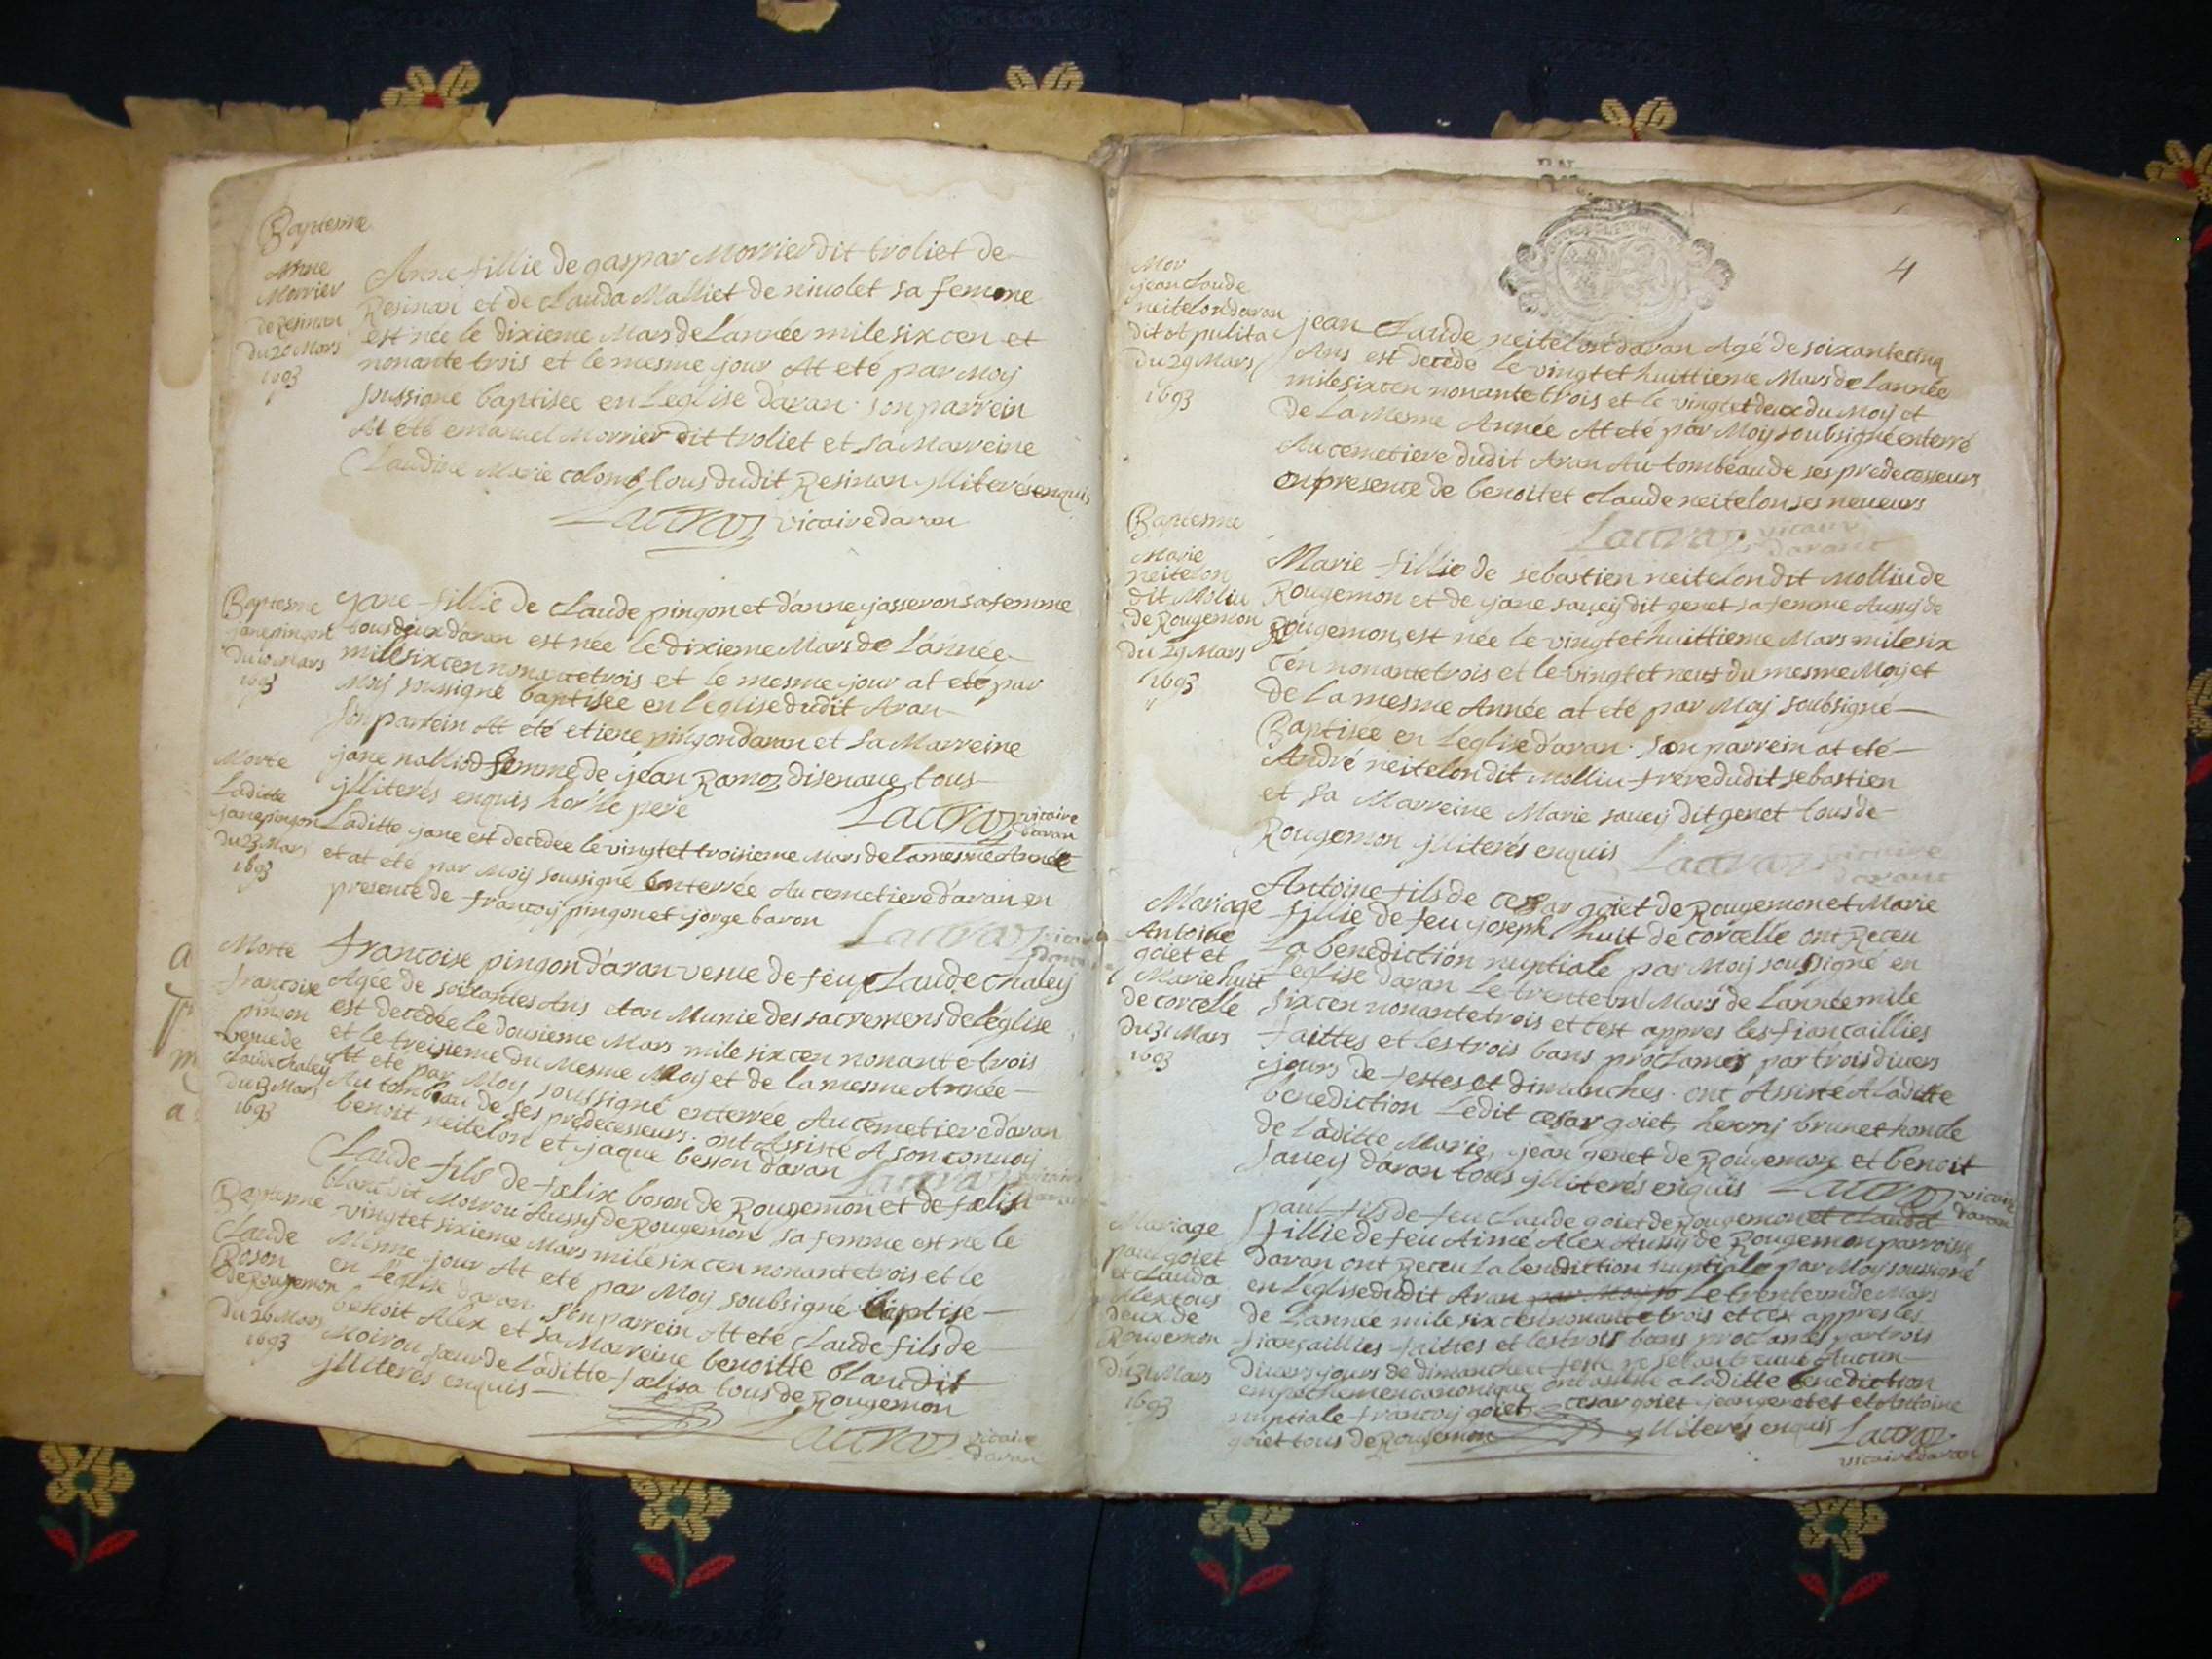 Baptesme
Anne
Morrier
de Resinan
du 20 Mars
1693
Anne fillie de gaspar Morrier dit troliet de
Resinan et de Clauda Malliet de niuolet sa femme
est née le dixieme Mars de Lannée mile six cen et
nonante trois et le mesme jour At eté par Moij
soussigné baptisée en Leglise d'aran. son parrein
At eté emanuel Morrier dit troliet et sa Marreine
Claudine Marie colomb tous dudit Resinan jlliterés enquis
Lacroz vicaire daran
Baptesme
jane pingon
du 10 Mars
1693
jane fillie de Claude pingon et d'anne jasseron sa femme
tous deux d'aran est née le dixieme Mars de L'année
mile six cen nonante trois et le mesme jour at eté par
Moij soussigné baptisée en l'eglise dudit Aran
son parrein At été etiene pingon d'aran et sa Marreine
jane nalliod femme de jean Ramoz disenaue tous
jlliterés enquis hor'le pere
Lacroz vicaire
daran
Morte
Laditte
jane pingon
du 23 Mars
1693
Laditte jane est decedée le vingt et troisieme Mars de la mesme Année
et at eté par Moij soussigné enterrée Au cemetiere d'aran en
presente de francoij pingon et jorge baron
Lacroz
Morte
francoise
pingon
veuue de
Claude Chaley
du 13 Mars
1693
francoise pingon d'aran veuue de feu Claude Chaleij
Agée de soixantes Ans et an Munie des sacremens de leglise
est decedée le dousieme Mars mile six cen nonante trois
et le treisieme du Mesme Moij et de la mesme Année
At eté par Moij soussigné enterrée Au cemetiere d'aran
Au tombeau de ses predecesseurs. ont Assisté A son conuoij
benoit neitelon et jaque besson d'aran
Lacroz
Baptesme
Claude
Boson
de Rougemon
du 26 Mars
1693
Claude fils de fœlix boson de Rougemon et de fœlisa
blanc dit Moirou Aussij de Rougemon sa femme est né le
vingt et sixieme Mars mile six cen nonante trois et le
Mesme jour At eté par Moij soubsigné baptisé
en l'eglise d'aran son parrein At eté Claude fils de
benoit Alex et sa Marreine benoitte blanc dit
Moirou sœur de laditte fœlisa tous de Rougemon
jlliterés enquis
Lacroz vicaire
daran
4
Mor
jean Claude
neitelon daran
dit ot pulita
du 29 Mars
1693
jean Claude neitelon d'aran Agé de soixante cinq
Ans est decedé Le vingt et huittieme Mars de Lannée
mile six cen nonante trois et le vingt et deux du Moij et
de La Mesme Année At eté par Moij soubsigné enterré
Au cemetiere dudit Aran Au tombeau de ses predecesseurs
en presente de benoit et Claude neitelon ses neueurs
Lacroz vicaire
daran
Baptesme
Marie
neitelon
dit Moliu
de Rougemon
du 29 Mars
1693
Marie fillie de sebastien neitelon dit Molliu de
Rougemon et de jane saueij dit genet sa femme Aussij de
Rougemon, est née le vingt et huittieme Mars mile six
cen nonante trois et le vingt et neuf du mesme Moij et
de la mesme Année at eté par Moij soubsigné
Baptisée en L'eglise d'aran. son parrein at eté
André neitelon dit Molliu frere dudit sebastien
et sa Marreine Marie saueij dit genet tous de
Rougemon jlliterés enquis
Lacroz vicaire
daran
Mariage
Antoine
goiet et
Marie huit
de corcelle
du 31 Mars
1693
Antoine fils de cesar goiet de Rougemon et Marie
fillie de feu joseph huit de corcelle ont Receu
La benediction nuptiale par Moij soussigné en
L'eglise d'aran Le trente un Mars de L'année mile
six cen nonante trois et c'est appres les fiancaillies
faittes et les trois bans proclames par trois diuers
jours de festes et dimanches. ont Assiste A laditte
benediction Ledit cesar goiet, henrij brunet honcle
de Laditte Marie, jean genet de Rougemon et benoit
saueij d'aran tous jlliterés enquis
Lacroz vicaire
daran
Mariage
paul goiet
et Clauda
Alex tous
deux de
Rougemon
du 31 Mars
1693
paul fils de feu Claude goiet de Rougemon et Clauda
fillie de feu Aimé Alex Aussij de Rougemon parroisse
daran ont Receu La benediction nuptiale par Moij soussigné
en L'eglise dudit Aran Le trente un de Mars
de L'année mile six cen nonante trois et c'ex appres les
fiancaillies faittes et les trois bans proclames par trois
diuers jours de dimanche et feste ne s'etant trouué Aucun
empechemen canonique ont assisté a laditte benediction
nuptiale francoij goiet cesar goiet jean genet et Antoine
goiet tous de Rougemon jlliterés enquis
Lacroz
vicaire daran